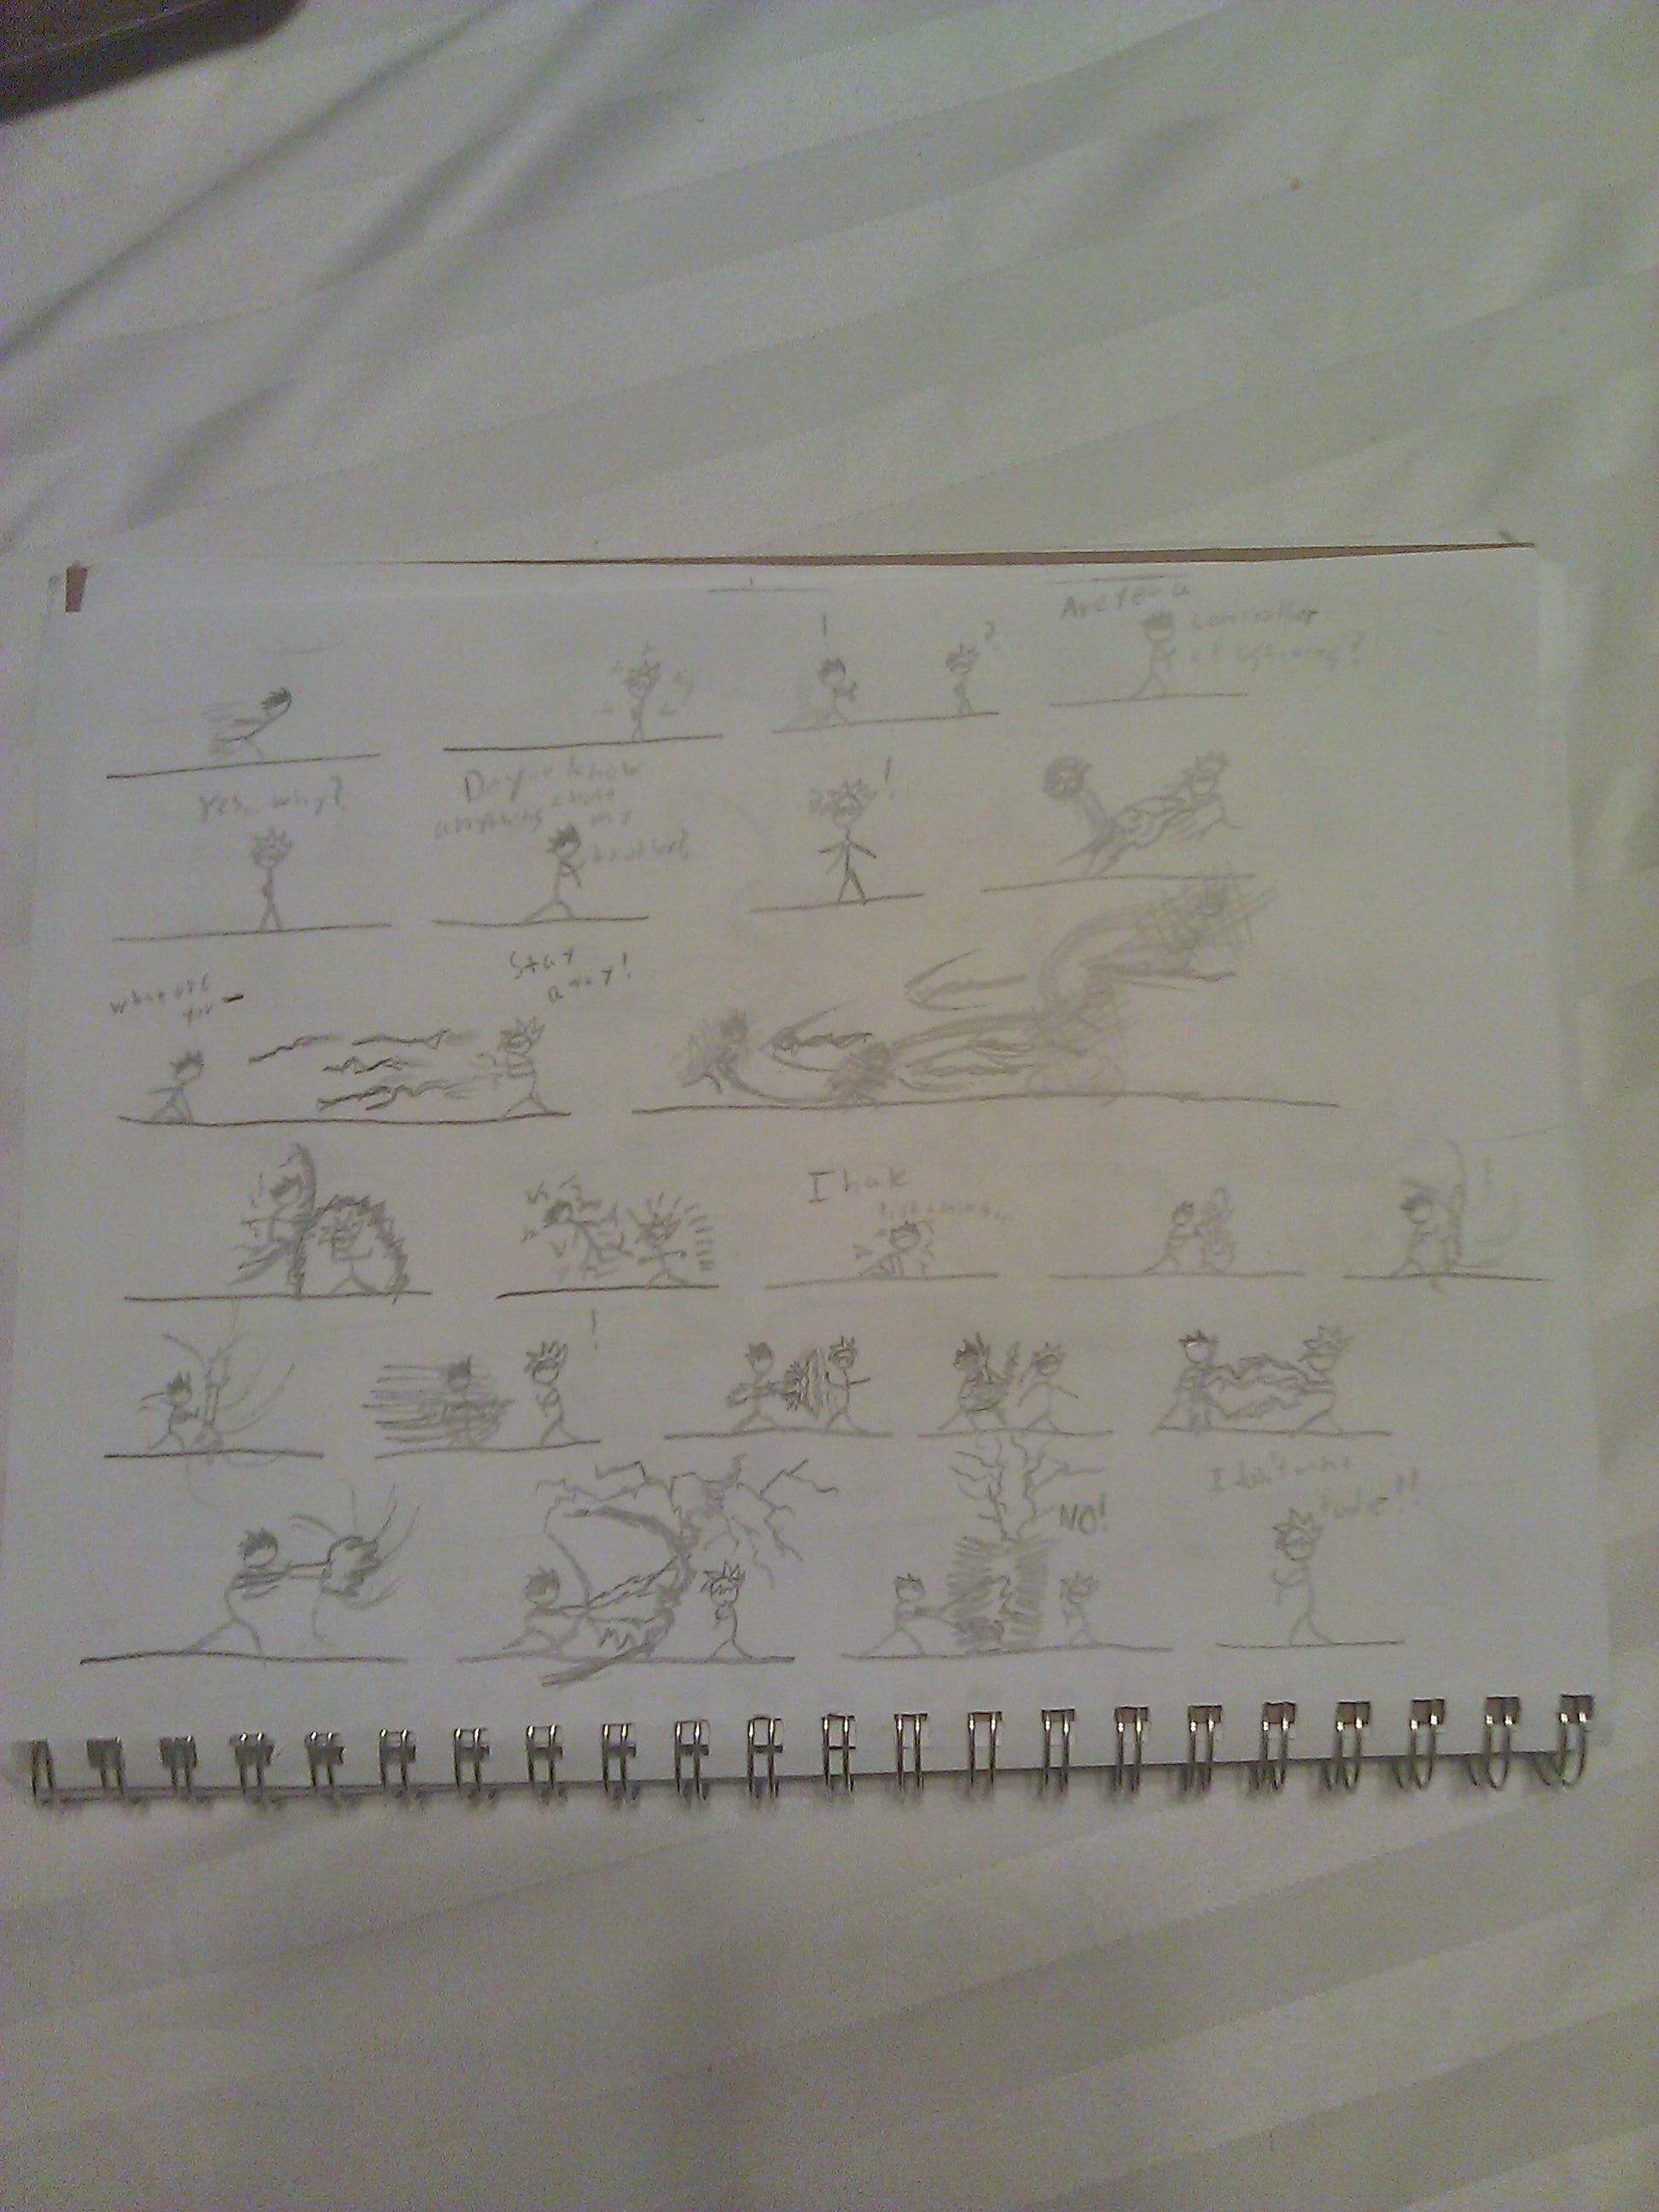 !
?
Are you a
controller
of lightning?
Yes... why?
Do you know
anything about
my
brother?
!
What are
you-
Stay
away!
I hate
lightning...
!
NO!
I don't wanna
!!